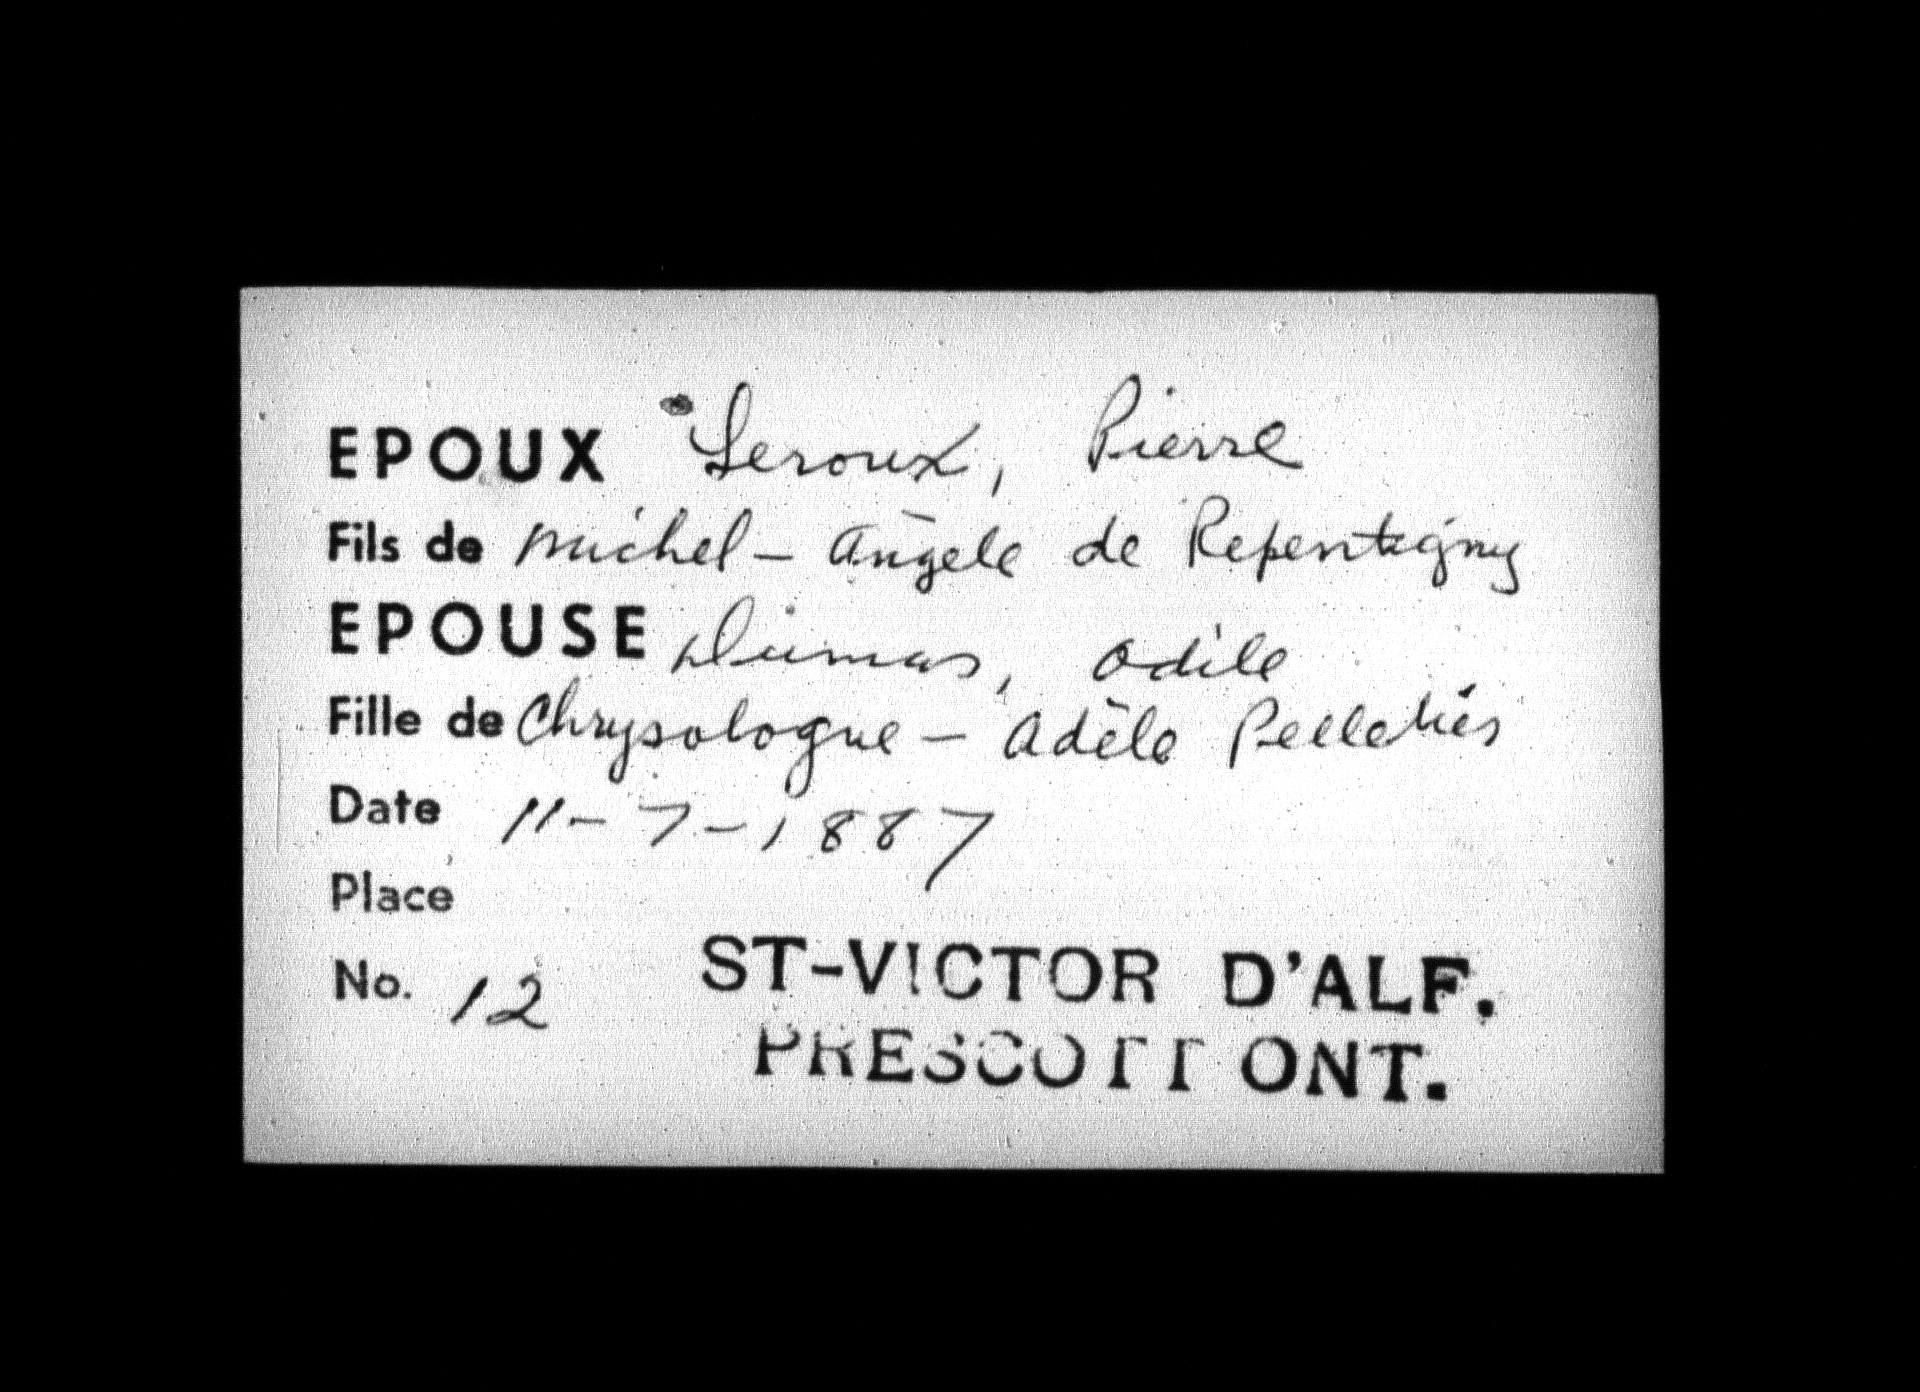 EPOUX Leroux, Pierre
Fils de Michel - Angèle de Repentigny
EPOUSE Dumas, Odile
Fille de Chrysologue - Adèle Pelletier
Date 11-7-1887
Place
No. 12 ST-VICTOR D'ALF.
PRESCOTT ONT.